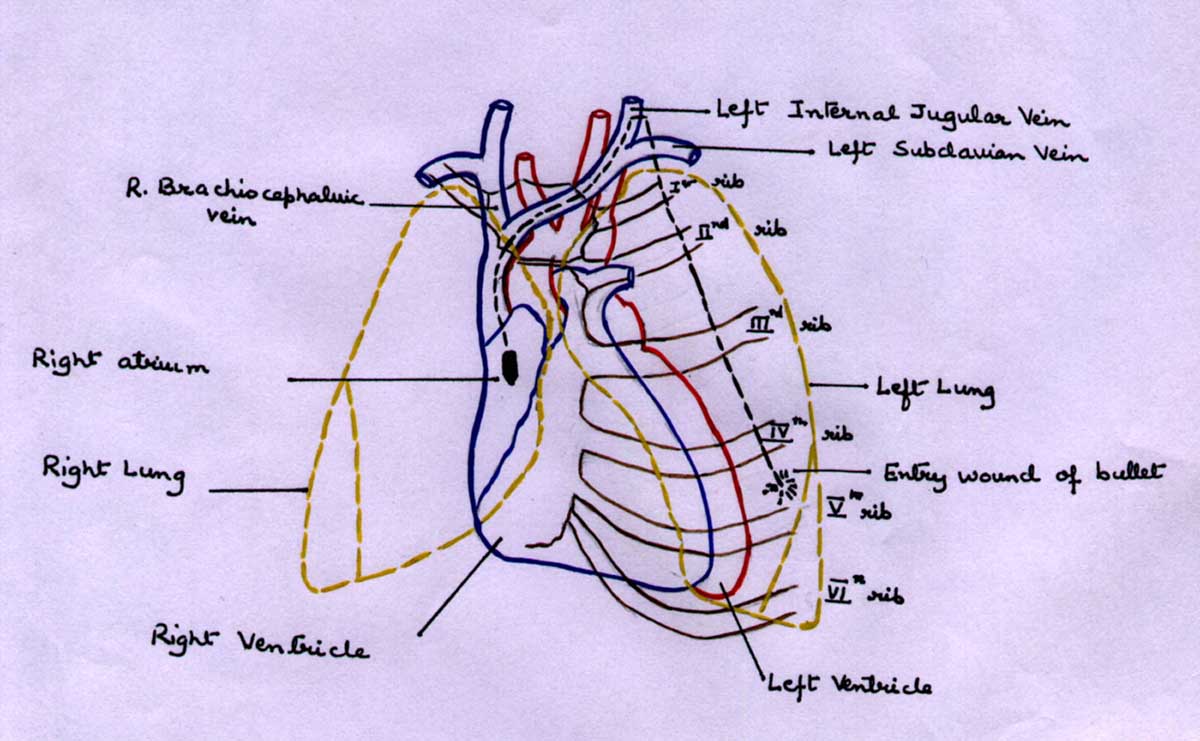 Left Internal Jugular Vein
Left Subclavian Vein
R. Brachiocephaluic
vein
Ist rib
IInd rib
IIIrd rib
Right atrium
Left Lung
IVth rib
Right Lung
Entry wound of bullet
Vth rib
VIth rib
Right Ventricle
Left Ventricle